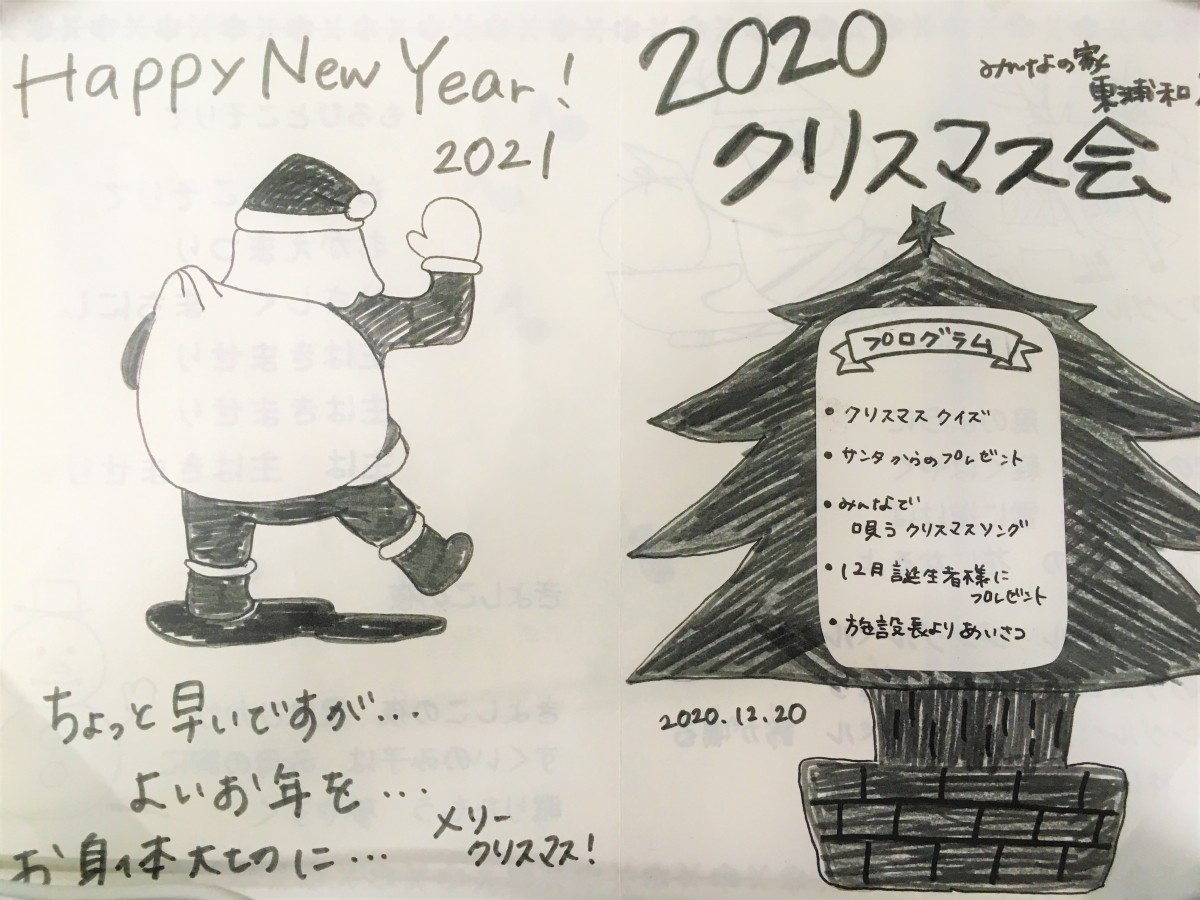 Happy New Year!
2021
ちょっと早いですが…
よいお年を…
お身体大切に…
メリー
クリスマス!
2020
みんなの家
東浦和
クリスマス会
プログラム
• クリスマスクイズ
• サンタからのプレゼント
• みんなで
唄うクリスマスソング
• 12月誕生者様に
プレゼント
• 施設長よりあいさつ
2020.12.20